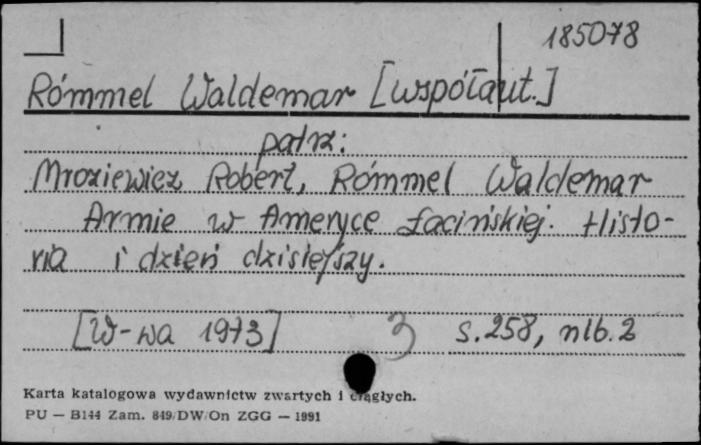 185078
Rómmel Waldemar [współaut.]
patrz:
Mroziewicz Robert, Rómmel Waldemar
Armie w Ameryce Łacińskiej. Histo-
ria i dzień dzisiejszy.
[W-wa 1973] 3 s.258, nlb.2
Karta katalogowa wydawnictw zwartych i ciągłych.
PU — B144 Zam. 849/DW/On ZGG — 1991